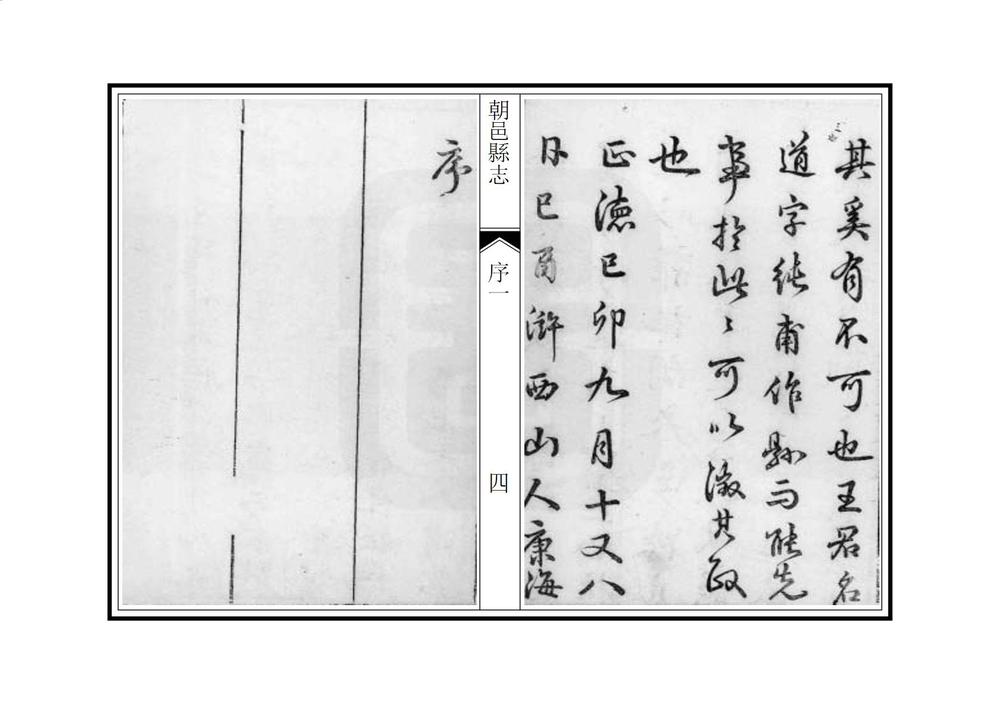 其奚有不可也王君名
道字純甫作縣而能先
事於此〻可以激其政
也
正德己卯九月十又八
日己酉滸西山人康海
朝邑縣志
序一
四
序